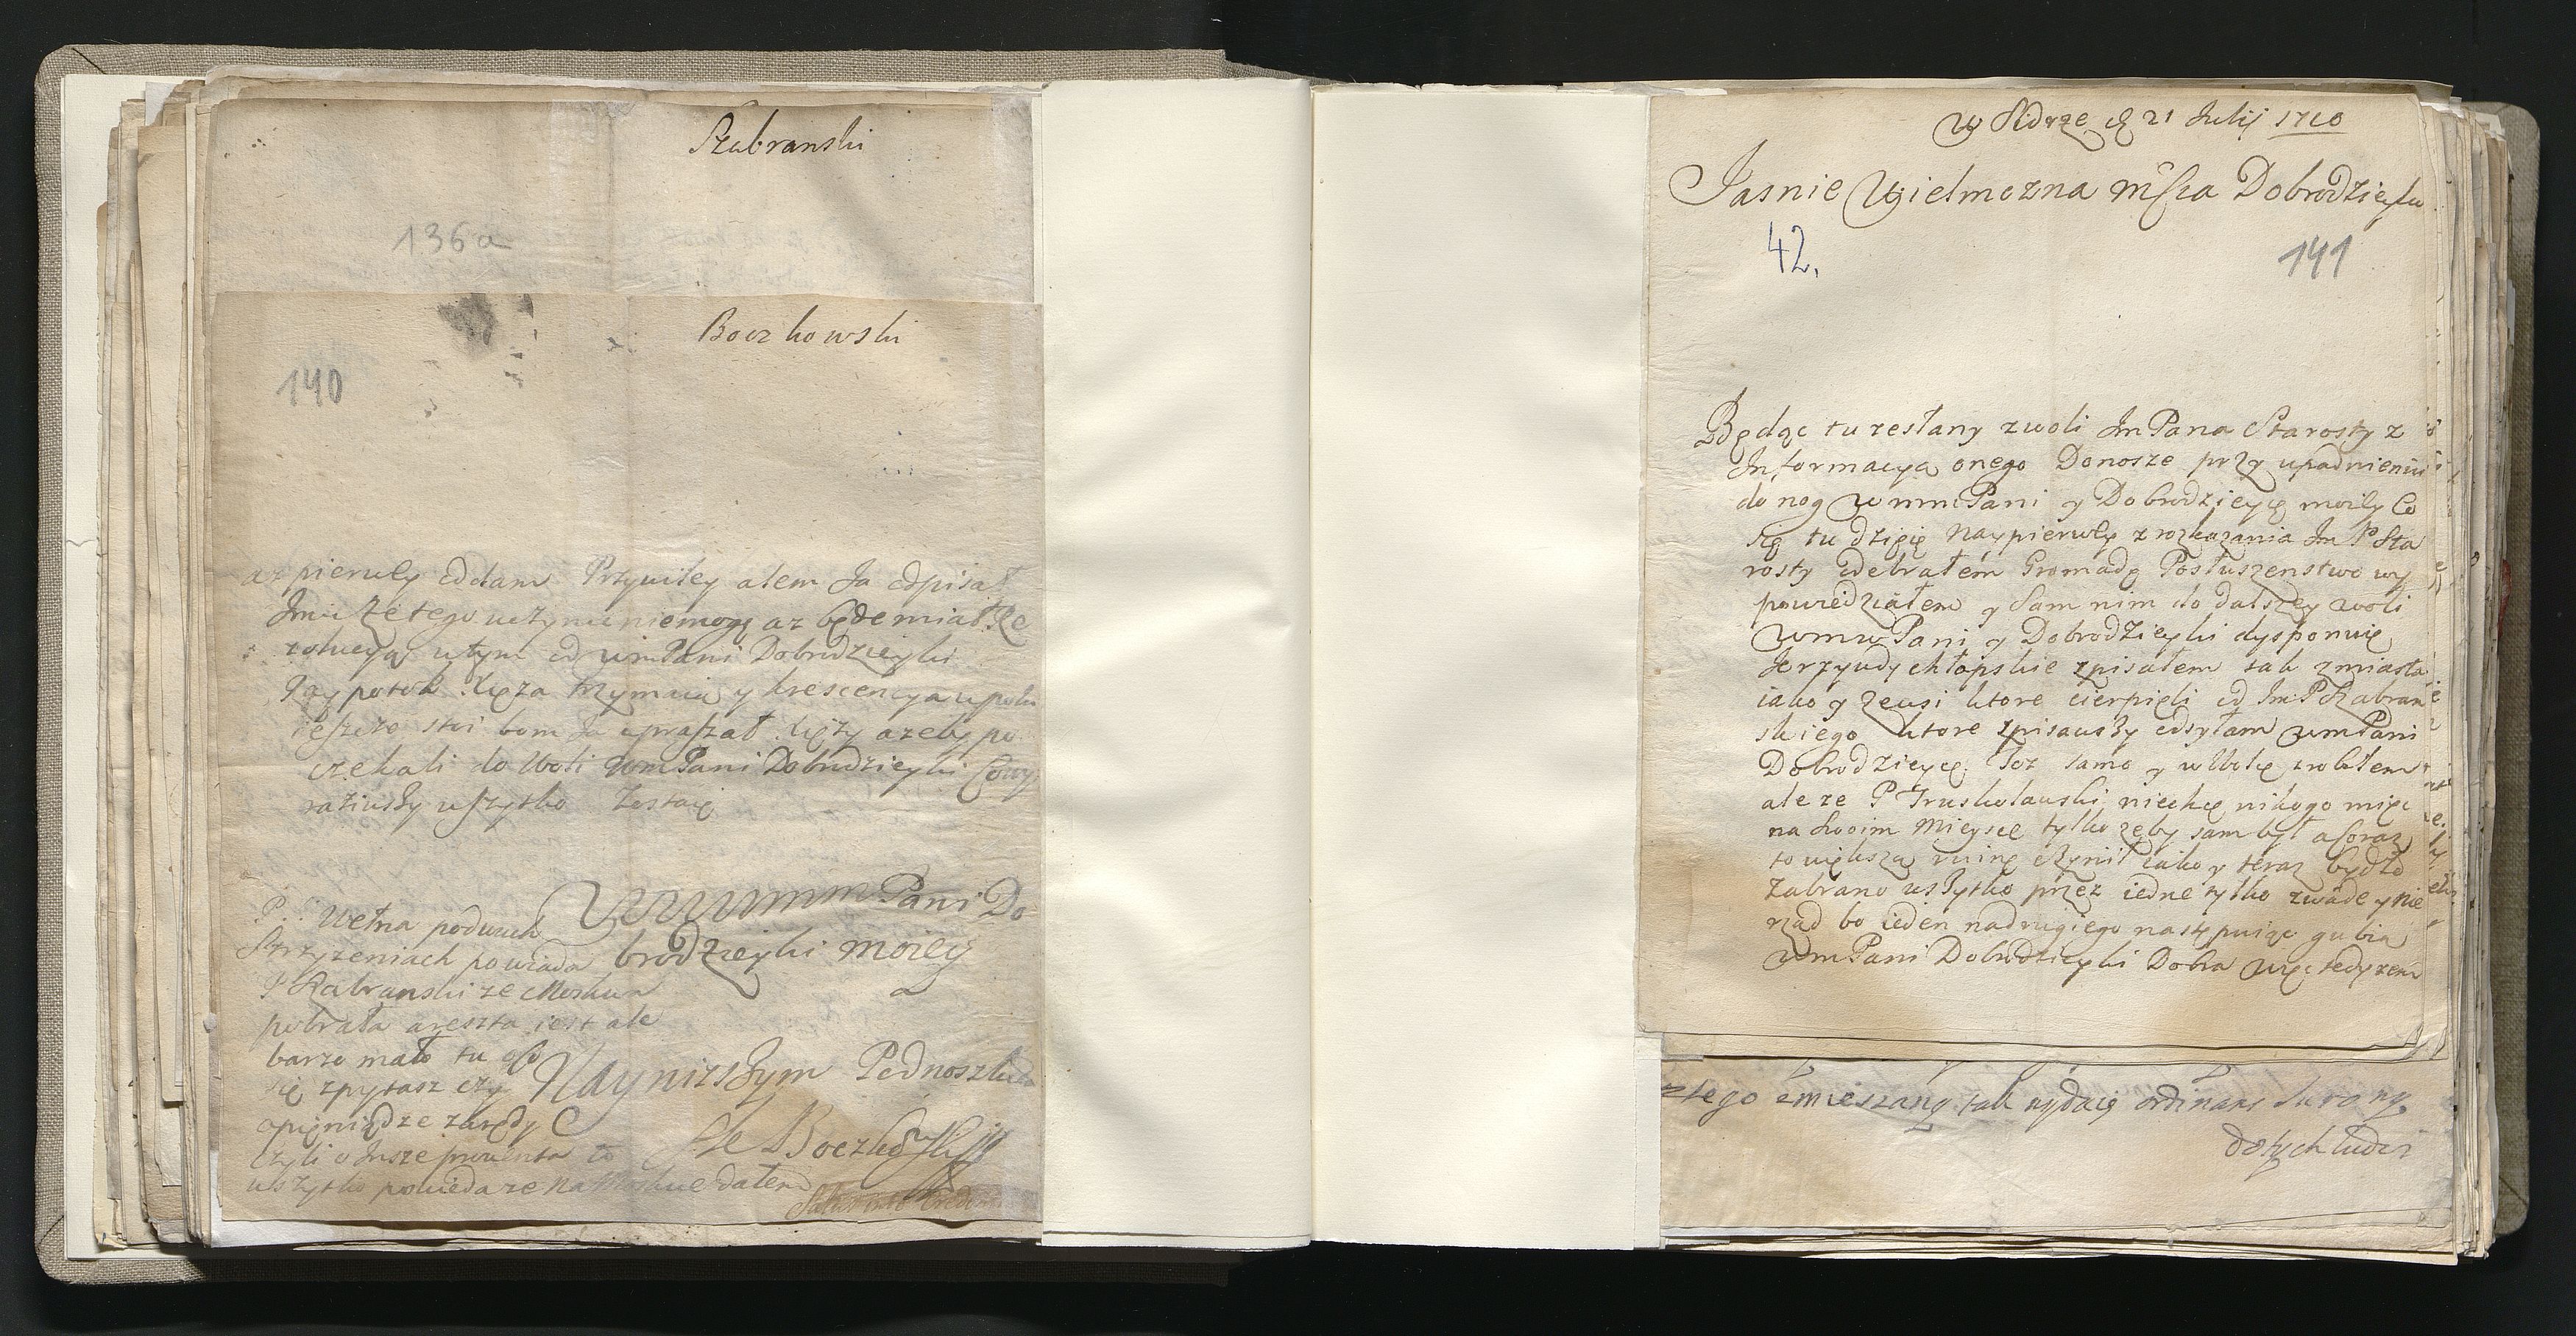 Szabranski
136a
Boczkowski
140
az pierwey oddam Przywiley alem Ja odpisał
Imci ze tego uczynic niemogę az będe miał Re
zolucyą wtym od WmPani Dobrodzieyki
Xięza trzymaią y krescencya wpolu
ieszcze stoi bom Ja upraszał Xięzy azeby po
czekali do Woli WmPani Dobrodzieyki Cowy
raziwszy wszytko Zostaię
Pani Do
brodzieyki moiey
Naynizszym Podnoszkiem
Boczkowski
Wełna podwuch
Strzyzeniach powiada
P Szabranski ze Moskwa
pobrała a reszta iest ale
barzo mało tu
się spytasz czy
opieniądze
czyli o Insze prowenta to
wszytko powieda ze na Moskwe dałem
W Sidrze d 21 Julij 1710
Jasnie Wielmozna mścia Dobrodzieyko
42.
141
Będąc tu zesłany zwoli Im Pana Starosty z
Informacyą onego Donosze przy upadnieniu
do nog Pani y Dobrodzieyce moiey Co
się tu dzieie Naypierwey z rozkazania Im P Sta
rosty odebrałem Gromadę Posłuszenstwo wy
powiedziałem y Sam nim do dalszey woli
Pani y Dobrodzieyki dysponuię
krzywdy chłopskie spisałem tak zmiasta
iako y zewsi ktore cierpieli od Im P Szabran
skiego ktore spisawszy odsyłam WmPani
Dobrodzieyce Toz samo y zrobiłem
ale ze P Truskolawski niechce nikogo miec
na Swoim Mieysce tylko zeby sam był a coraz
to większą ruinę czynił iako y teraz bydło
Zabrano wszytko przez iedne tylko zwade y nie
rząd bo ieden nadrugiego następuiąc gubią
WmPani Dobrodzieyki Dobra więc tedy zem
ztego zmieszany tak wydaię ordinans
dotych ludzi